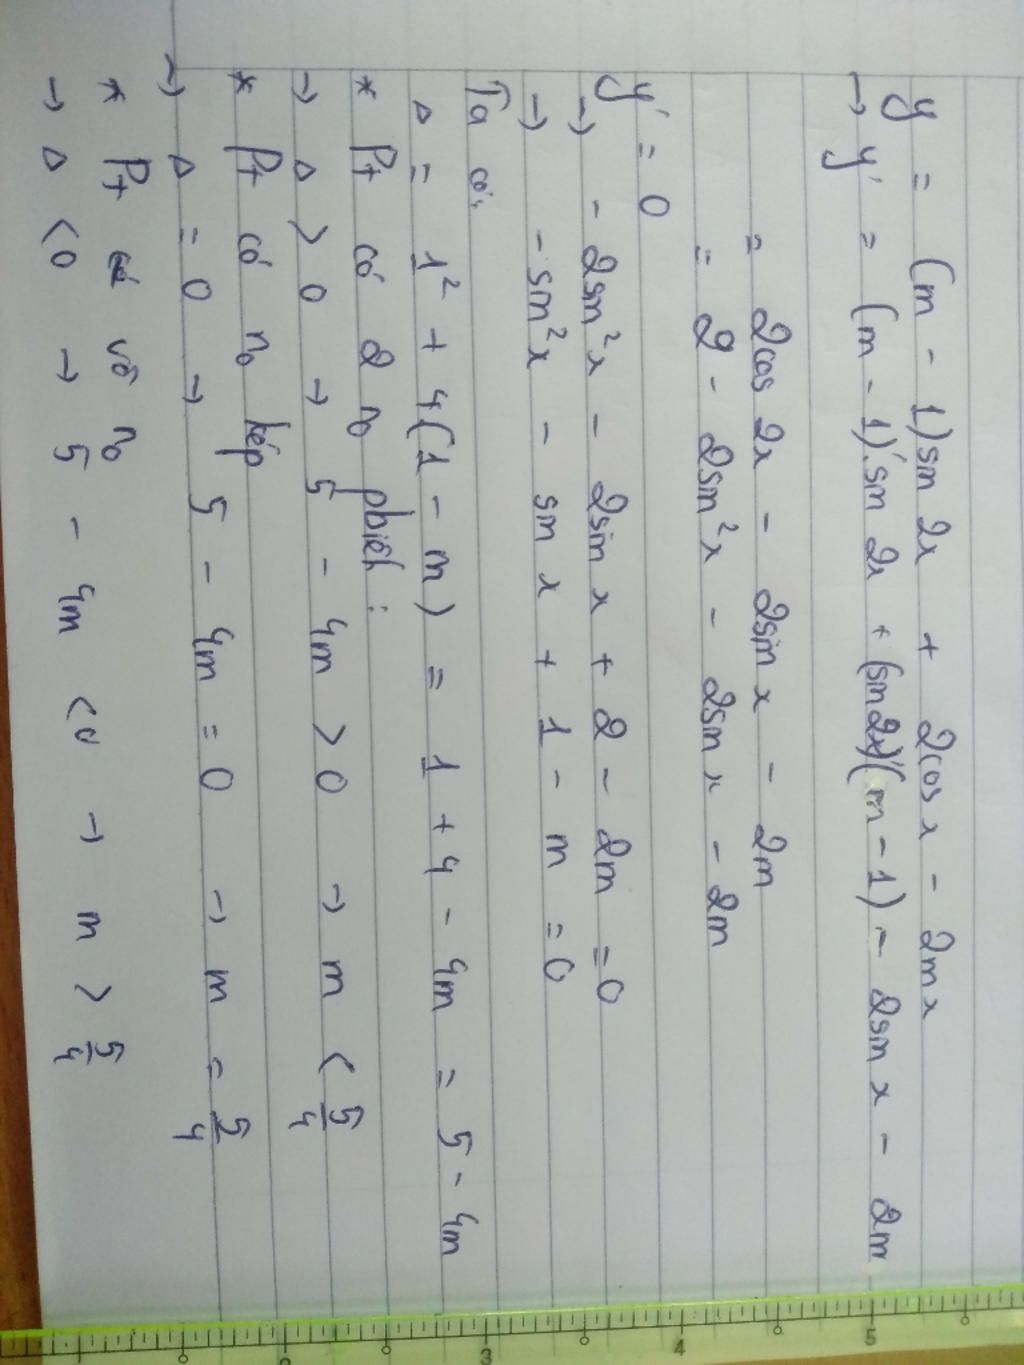 y = (m - 1)sin 2x + 2cos x - 2mx
→ y' = (m - 1)'.sin 2x + (sin2x)'(m - 1) - 2sin x - 2m
= 2cos 2x - 2sin x - 2m
= 2 - 2sin²x - 2sin x - 2m
y' = 0
→ - 2sin²x - 2sin x + 2 - 2m = 0
→ - sin²x - sin x + 1 - m = 0
Ta có:
Δ = 1² + 4(1 - m) = 1 + 4 - 4m = 5 - 4m
* Pt có 2 no pbiết :
→ Δ > 0 → 5 - 4m > 0 → m < 5/4
* Pt có no kép
→ Δ = 0 → 5 - 4m = 0 → m = 5/4
* Pt vô no
→ Δ < 0 → 5 - 4m < 0 → m > 5/4
3 4 5